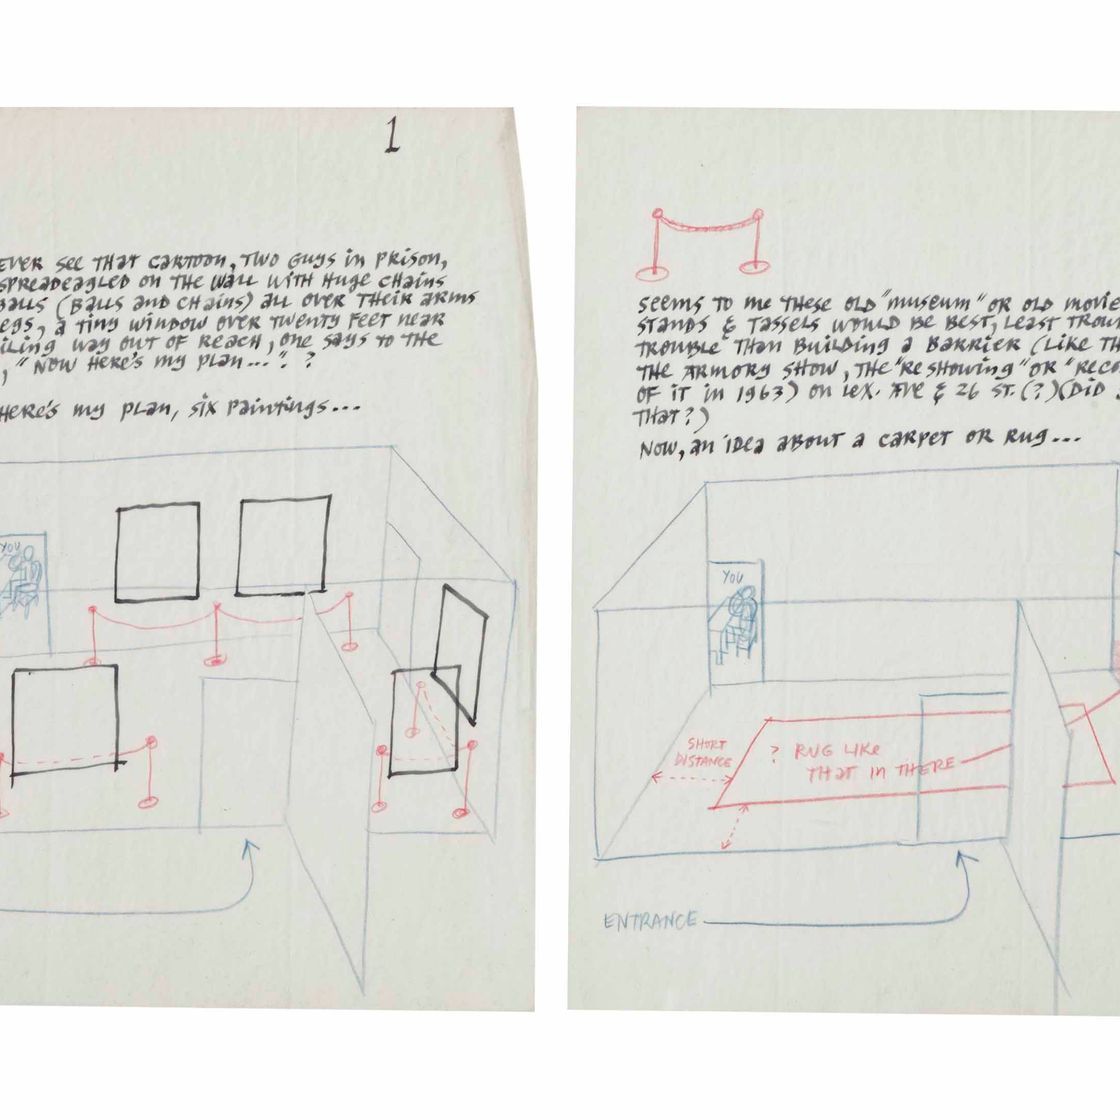 1
EVER SEE THAT CARTOON, TWO GUYS IN PRISON,
SPREADEAGLED ON THE WALL WITH HUGE CHAINS
BALLS (BALLS AND CHAINS) ALL OVER THEIR ARMS
EGS, A TINY WINDOW OVER TWENTY FEET NEAR
ILING WAY OUT OF REACH, ONE SAYS TO THE
, "NOW HERE'S MY PLAN...". ?
HERE'S MY PLAN, SIX PAINTINGS...
YOU
SEEMS TO ME THESE OLD "MUSEUM" OR OLD MOVIE
STANDS & TASSELS WOULD BE BEST, LEAST TROU
TROUBLE THAN BUILDING A BARRIER (LIKE TH
THE ARMORY SHOW, THE "RESHOWING" OR "RECO
OF IT IN 1963) ON LEX. AVE & 26 ST. (?) (DID
THAT?)
NOW, AN IDEA ABOUT A CARPET OR RUG...
YOU
SHORT
DISTANCE
? RUG LIKE
THAT IN THERE
ENTRANCE